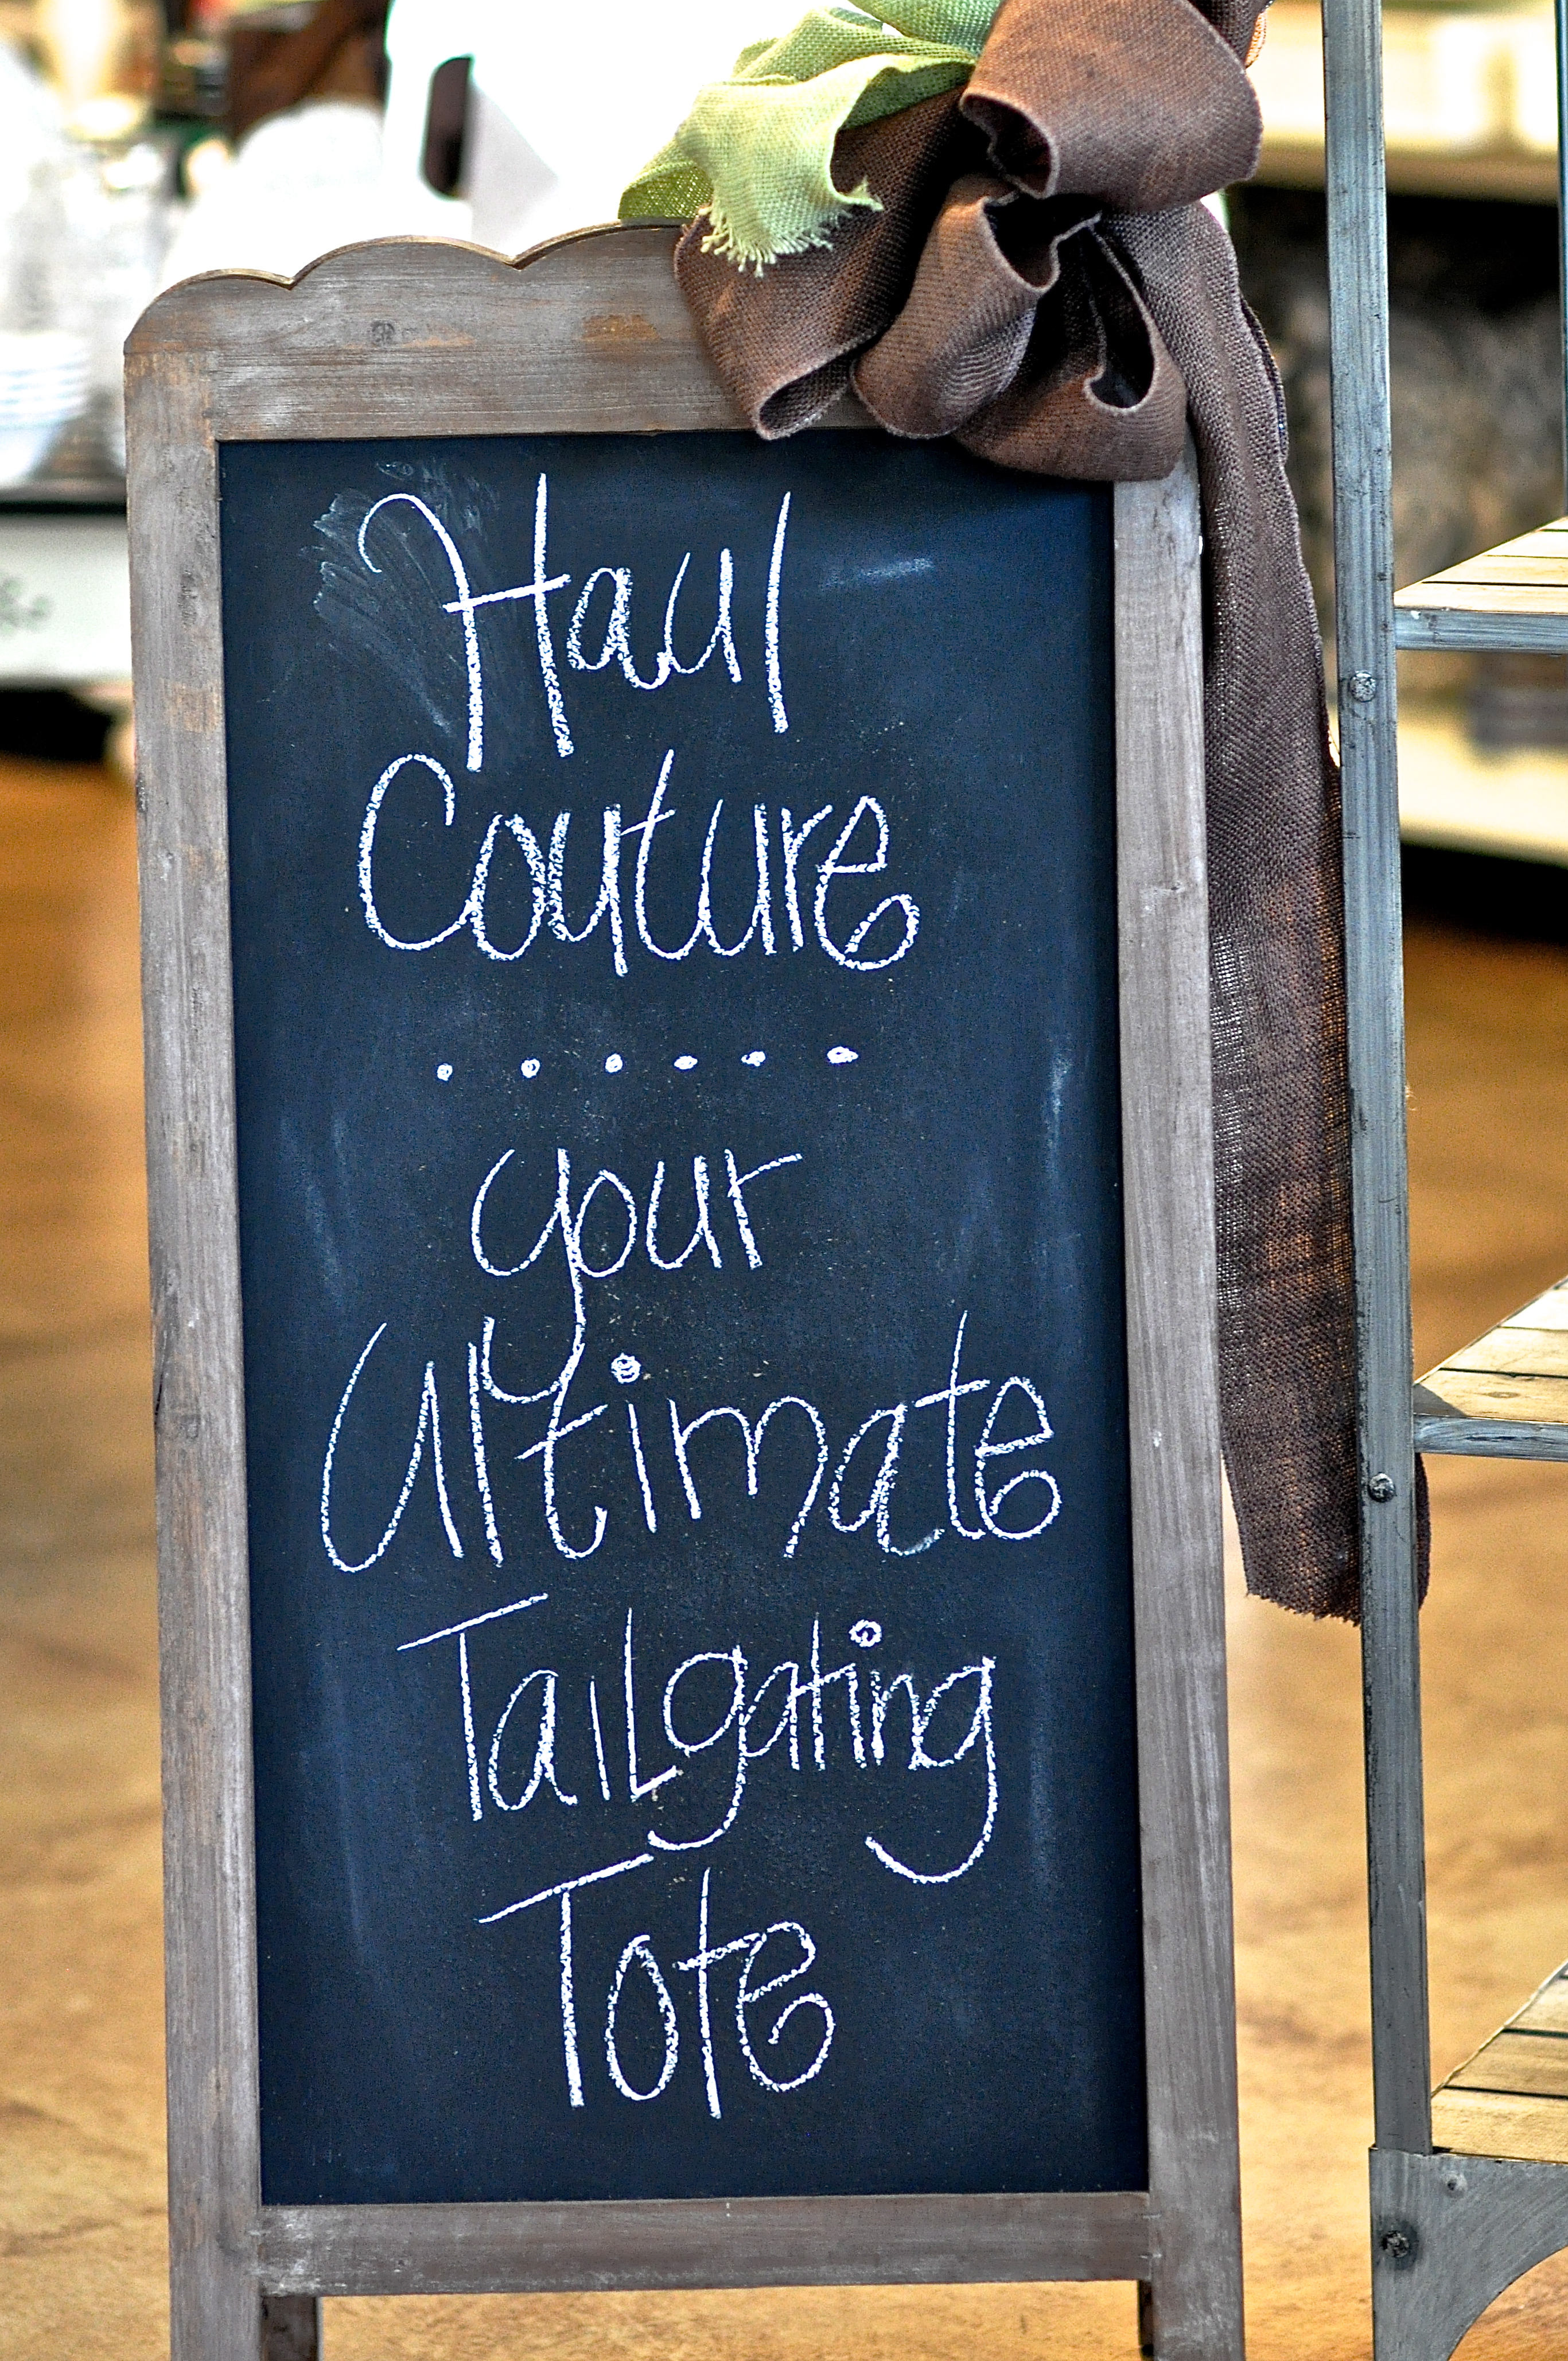 Haul
Couture
......
your
Ultimate
Tailgating
Tote